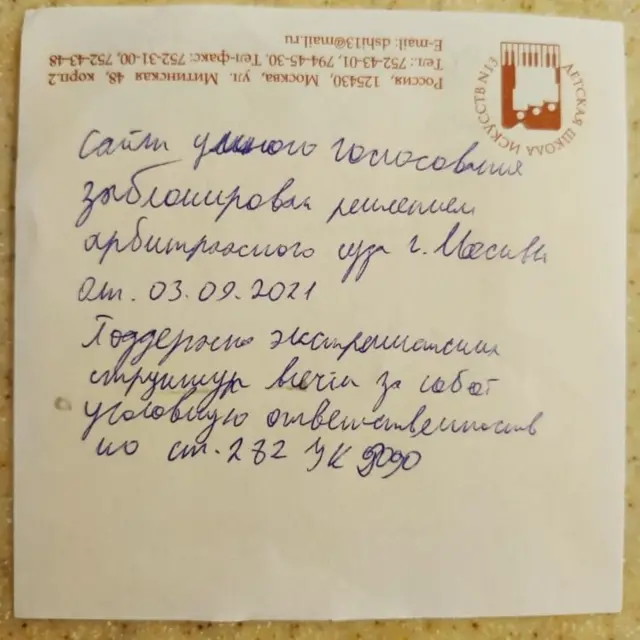 Россия, 125430, Москва, ул. Митинская 48, корп.2
Тел.: 752-43-01, 794-45-30. Тел-факс: 752-31-00, 752-43-48
E-mail: dshi13@mail.ru
ДЕТСКАЯ ШКОЛА ИСКУССТВ N13
Сайт умного голосования
заблокирован решением
арбитражного суда г. Москвы
от. 03.09.2021
Поддержка экстремистских
структур влечёт за собой
уголовную ответственность
по ст. 282 УК РФ